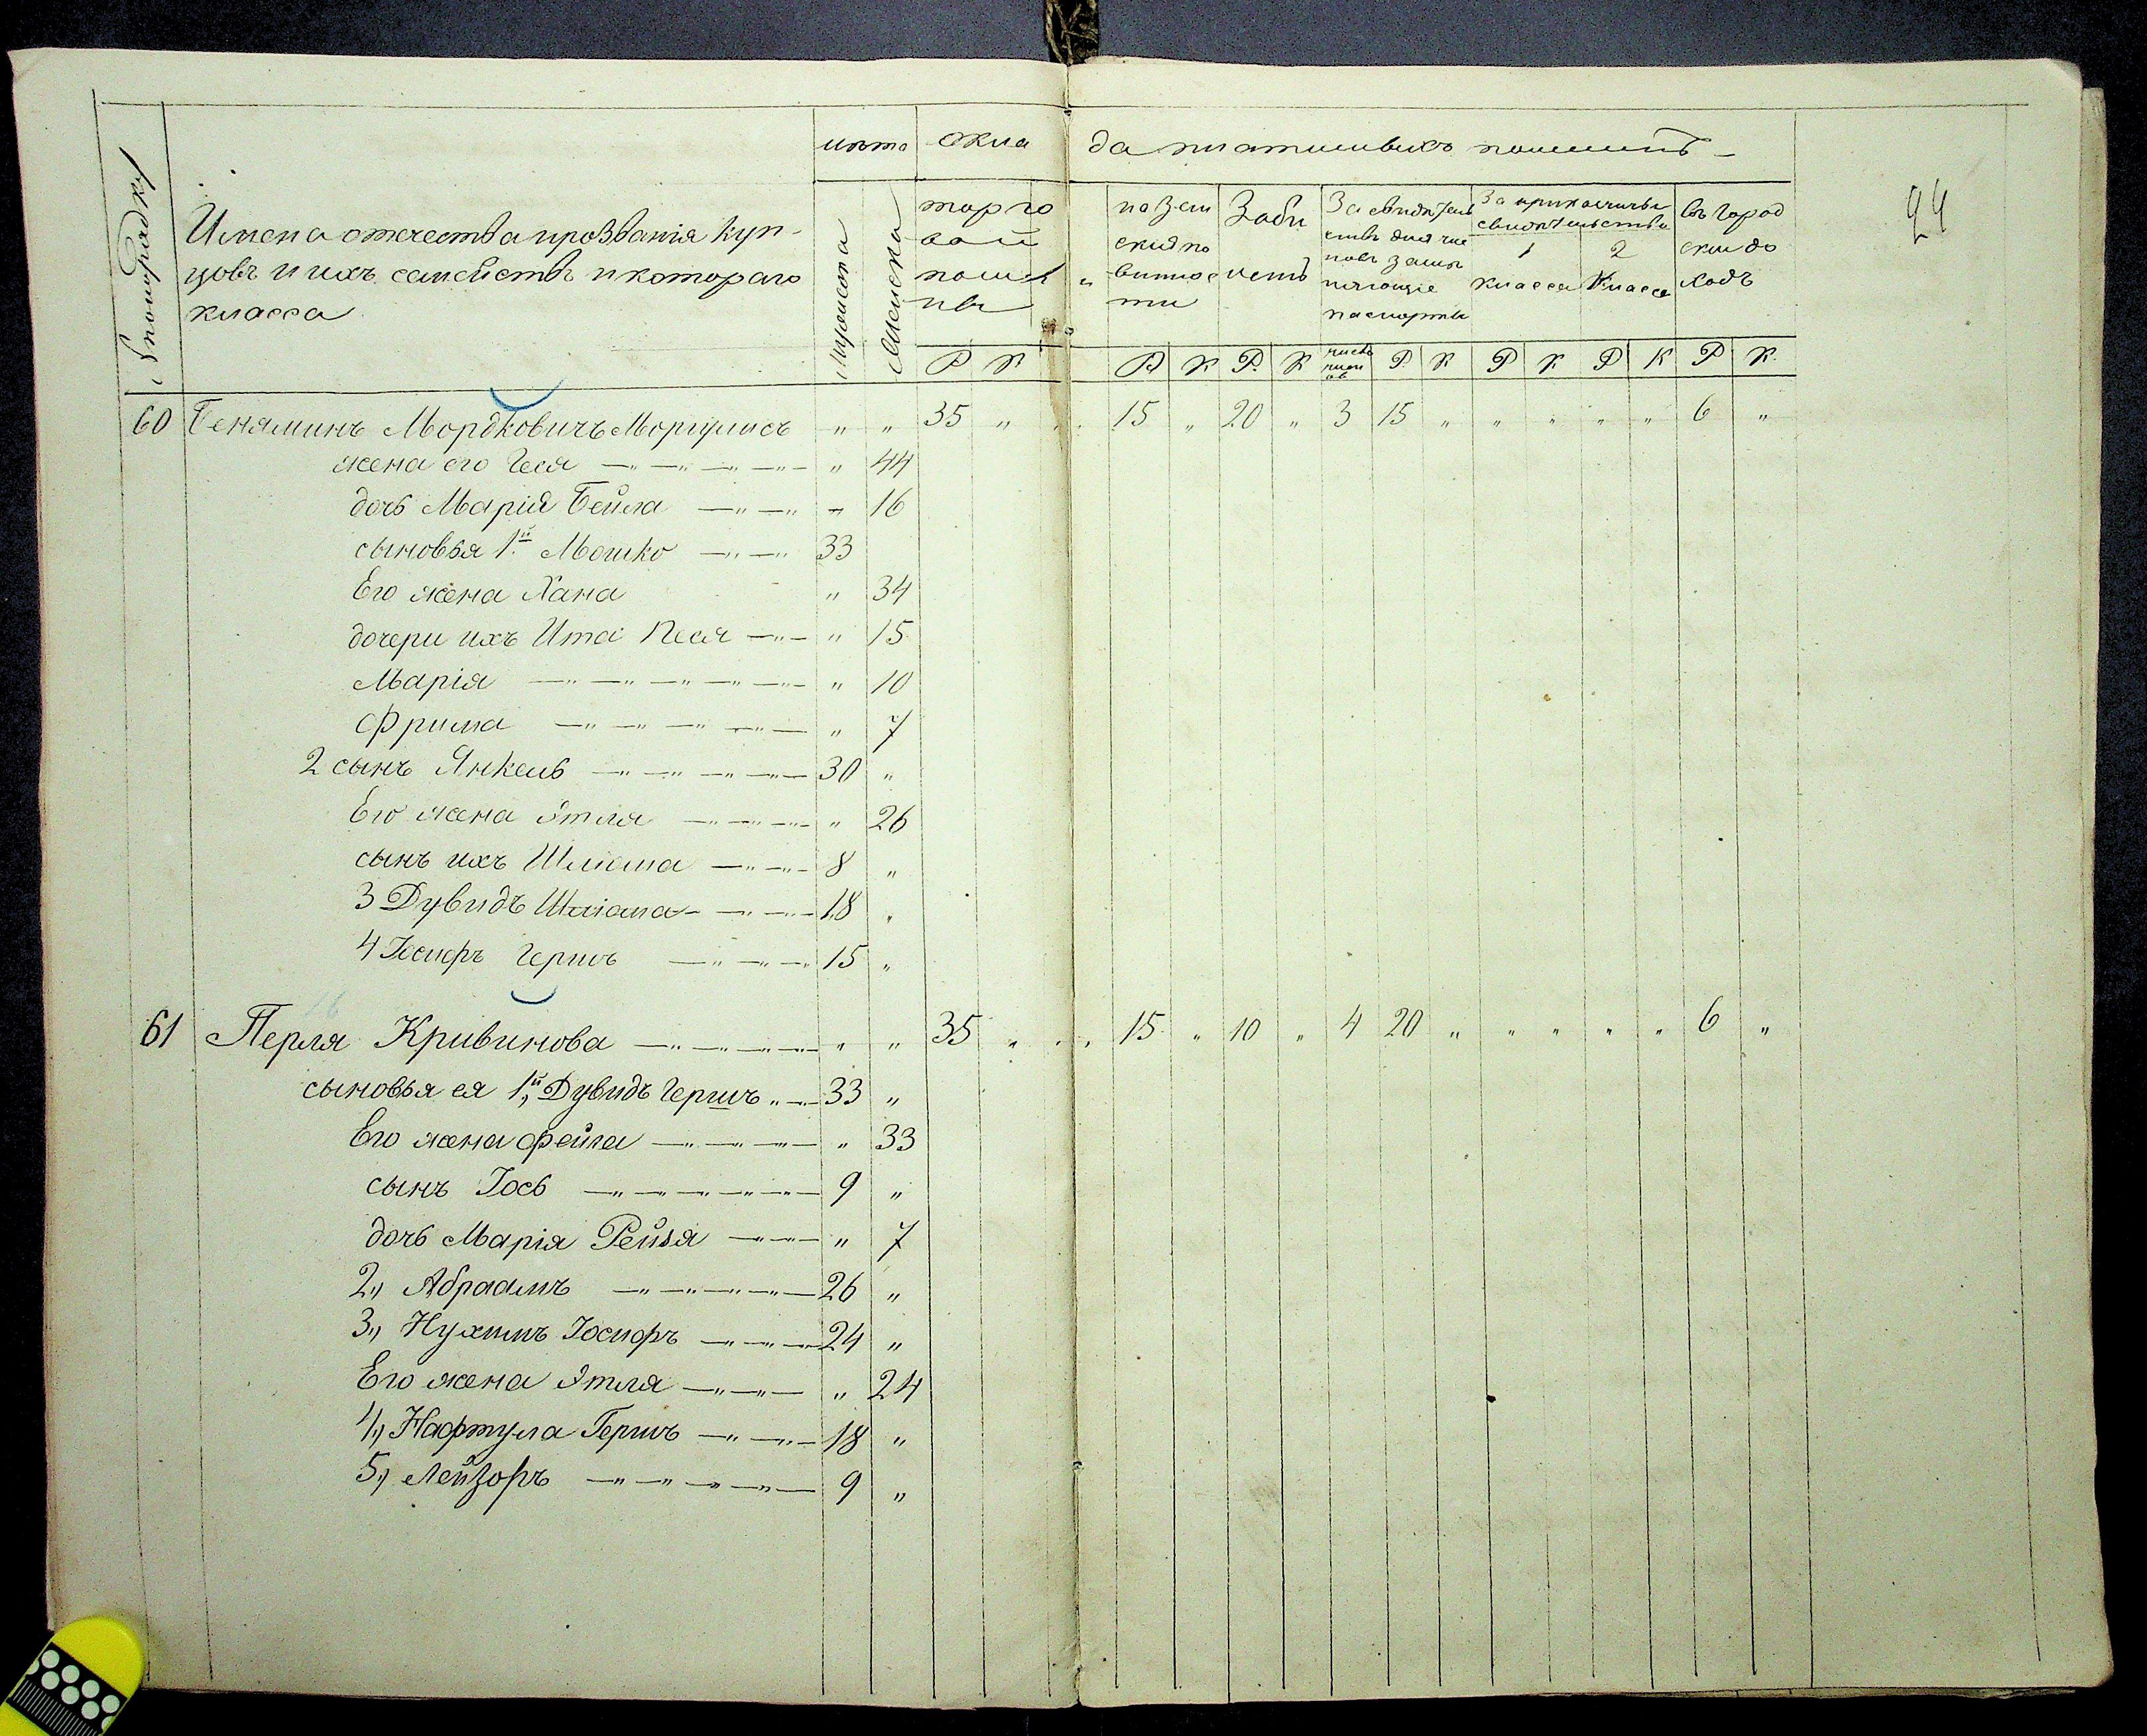 24
№ по порядку
Имена отечества и прозванія куп-
цовъ и ихъ семействъ и котораго
класса
лѣта
Мужеска
Женска
окла
да платившихъ пошлинъ
торго
вой
пошл
ны
на зем
скія по
виннос
ти
За би
летъ
За свидѣтель
ствъ для чле
новъ замѣ
няющіе
паспорты
За прикащичьи
свидѣтельства
1
класса
2
класса
въ город
ски до
ходъ
Р К Р К Р. К число Р. К Р К Р К Р К.
60 Беняминъ Мордковичъ Моргулисъ " " 35 " 15 " 20 " 3 15 " " " " " 6 "
жена его Геся " 44
дочь Марія Бейла " 16
сыновья 1й Мошко 33
Его жена Хана " 34
дочери ихъ Ита Песя " 15
Марія " 10
Фрима " 7
2 сынъ Янкель 30 "
Его жена Этля " 26
сынъ ихъ Шлиома 8 "
3 Дувидъ Шлиома 18 "
4 Іосифъ Гершъ 15 "
61 Перля Кривинова " " 35 " 15 " 10 " 4 20 " " " " " 6 "
сыновья ея 1й, Дувидъ Гершъ 33 "
Его жена Фейга " 33
сынъ Іось 9 "
дочь Марія Рейзя " 7
2,, Абраамъ 26 "
3,, Нухимъ Іосифъ 24 "
Его жена Этля " 24
4,, Нафтула Гершъ 18 "
5,, Лейзоръ 9 "